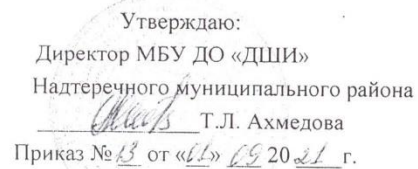 Утверждаю:
Директор МБУ ДО «ДШИ»
Надтеречного муниципального района
Т.Л. Ахмедова
Приказ № 13 от «01» 09 2021 г.